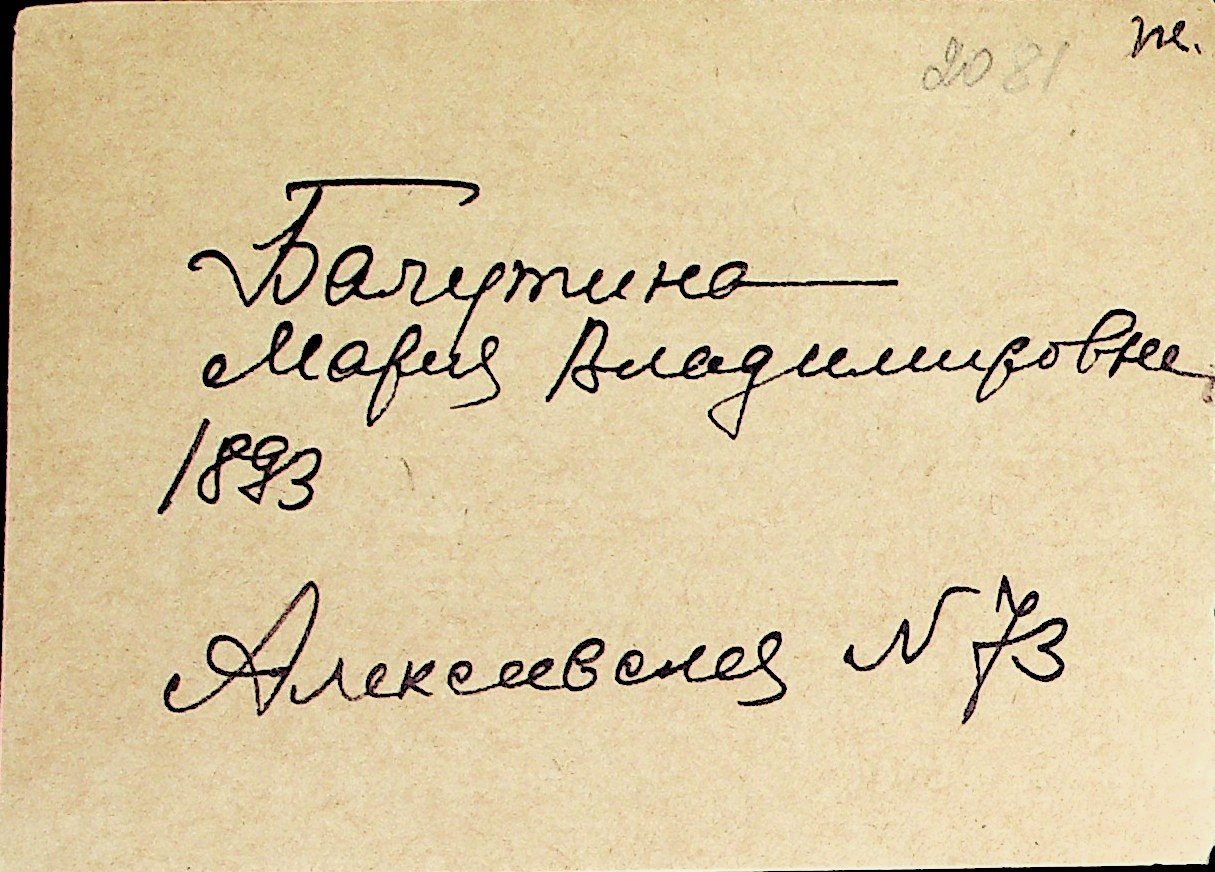 ж.
2081
Бачутина
Мария Владимировна
1893
Алексеевская N 73